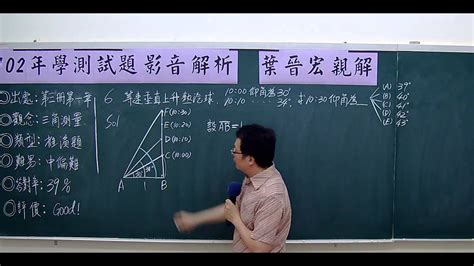 102年學測試題影音解析 葉晉宏親解
◎出處：第三冊第一章
◎觀念：三角測量
◎類型：推演題
◎難易：中偏難
◎答對率：39%
◎評價：Good!
6. 等速垂直上升熱氣球，10:00仰角為30°，10:10……34°，求10:30仰角為
(A) 39°
(B) 40°
(C) 41°
(D) 42°
(E) 43°
Sol
F(10:30)
E(10:20)
D(10:10)
C(10:00)
A 1 B
30° 34°
設AB=1